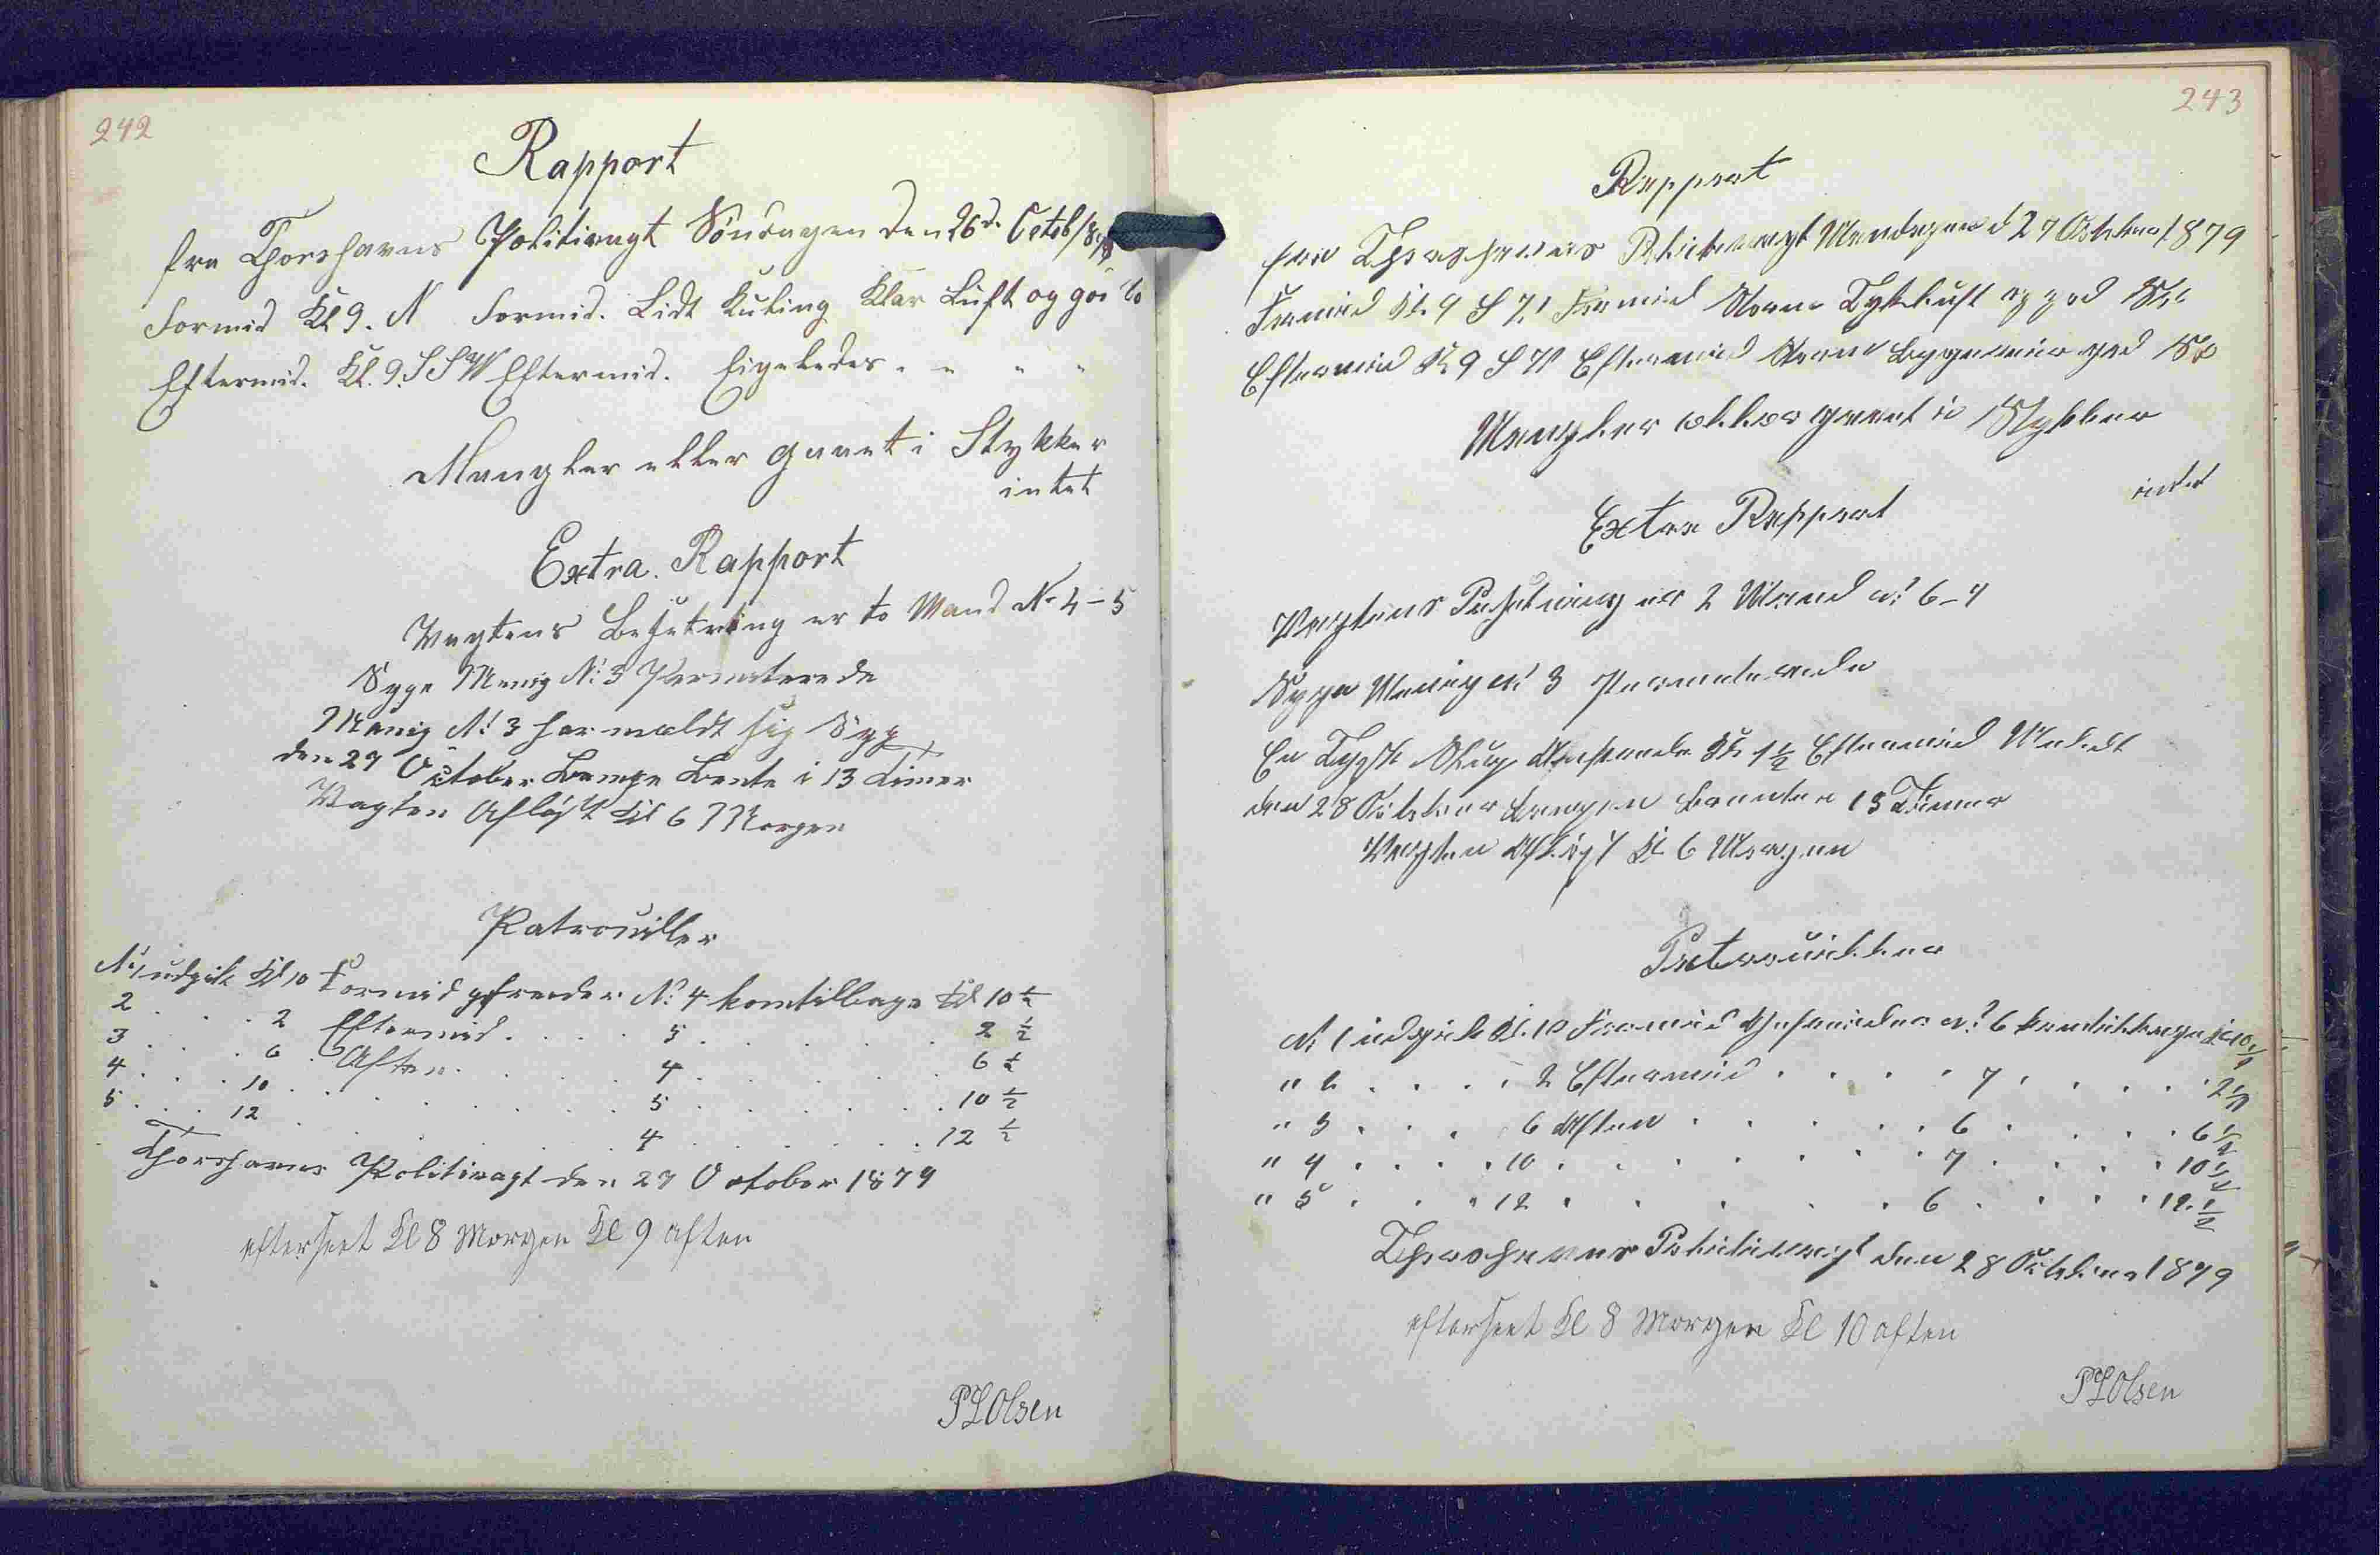 242
Rapport
fra Thorshavns Politivagt Søndagen den 26d. Octob/
Formid Kl 9. N Formid. Lidt Kuling Klar Luft og
Eftermid. Kl. 9. SSW Eftermid. Ligeledes " " " "
Mangler eller gaaet i Stykker
intet
Extra. Rapport
Vagtens Besetning er to Mand No 4-5
Syge Menig No: 3 Permiterede
Menig No: 3 har meldt sig Syg
den 27 October Lampe Brente i 13 Timer
Vagten Afløst Kl 6 Morgen
Patrouiller
No 1 udgik Kl 10 Formid Menig No: 4 kom tilbage Kl 10 1/2
2 . . . 2 Eftermid . . . . 5 . . . . . 2 1/2
3 . . . 6 . Aften . . . . 4 . . . . . 6 1/2
4 . . . 10 . . . . . . 5 . . . . . 10 1/2
5 . . . 12 . . . . . . 4 . . . . . 12 1/2
Thorshavns Politivagt den 27 October 1879
efterseet Kl 8 Morgen Kl 9 aften
PLOlsen
243
Rapport
fra Thorshavns Politivagt Mandagen d 27 October 1879
Formid Kl. 9 S W Formid Storm Tyk Luft og god
Eftermid Kl 9 S W Eftermid Storm Bygeveir god
Mangler eller gaaet i Stykker
intet
Extra Rapport
Vagtens Besetning er 2 Mand No: 6-7
Syge Menig No: 3 Permiterede
En Tysk Skip Kl 1 1/2 Eftermid
den 28 October Lampen Brente i 13 Timer
Vagten Afløst Kl 6 Morgen
Patrouiller
No 1 udgik Kl. 10 Formid No: 6 kom tilbage Kl 10 1/2
" 2 . . . . 2 Eftermid . . . . 7 . . . . 2 1/2
" 3 . . . 6 Aften . . . . . 6 . . . . 6 1/2
" 4 . . . . 10 . . . . . . 7 . . . . 10 1/2
" 5 . . . 12 . . . . . 6 . . . . 12. 1/2
Thorshavns Politivagt den 28 October 1879
efterseet Kl 8 Morgen Kl 10 aften
PLOlsen